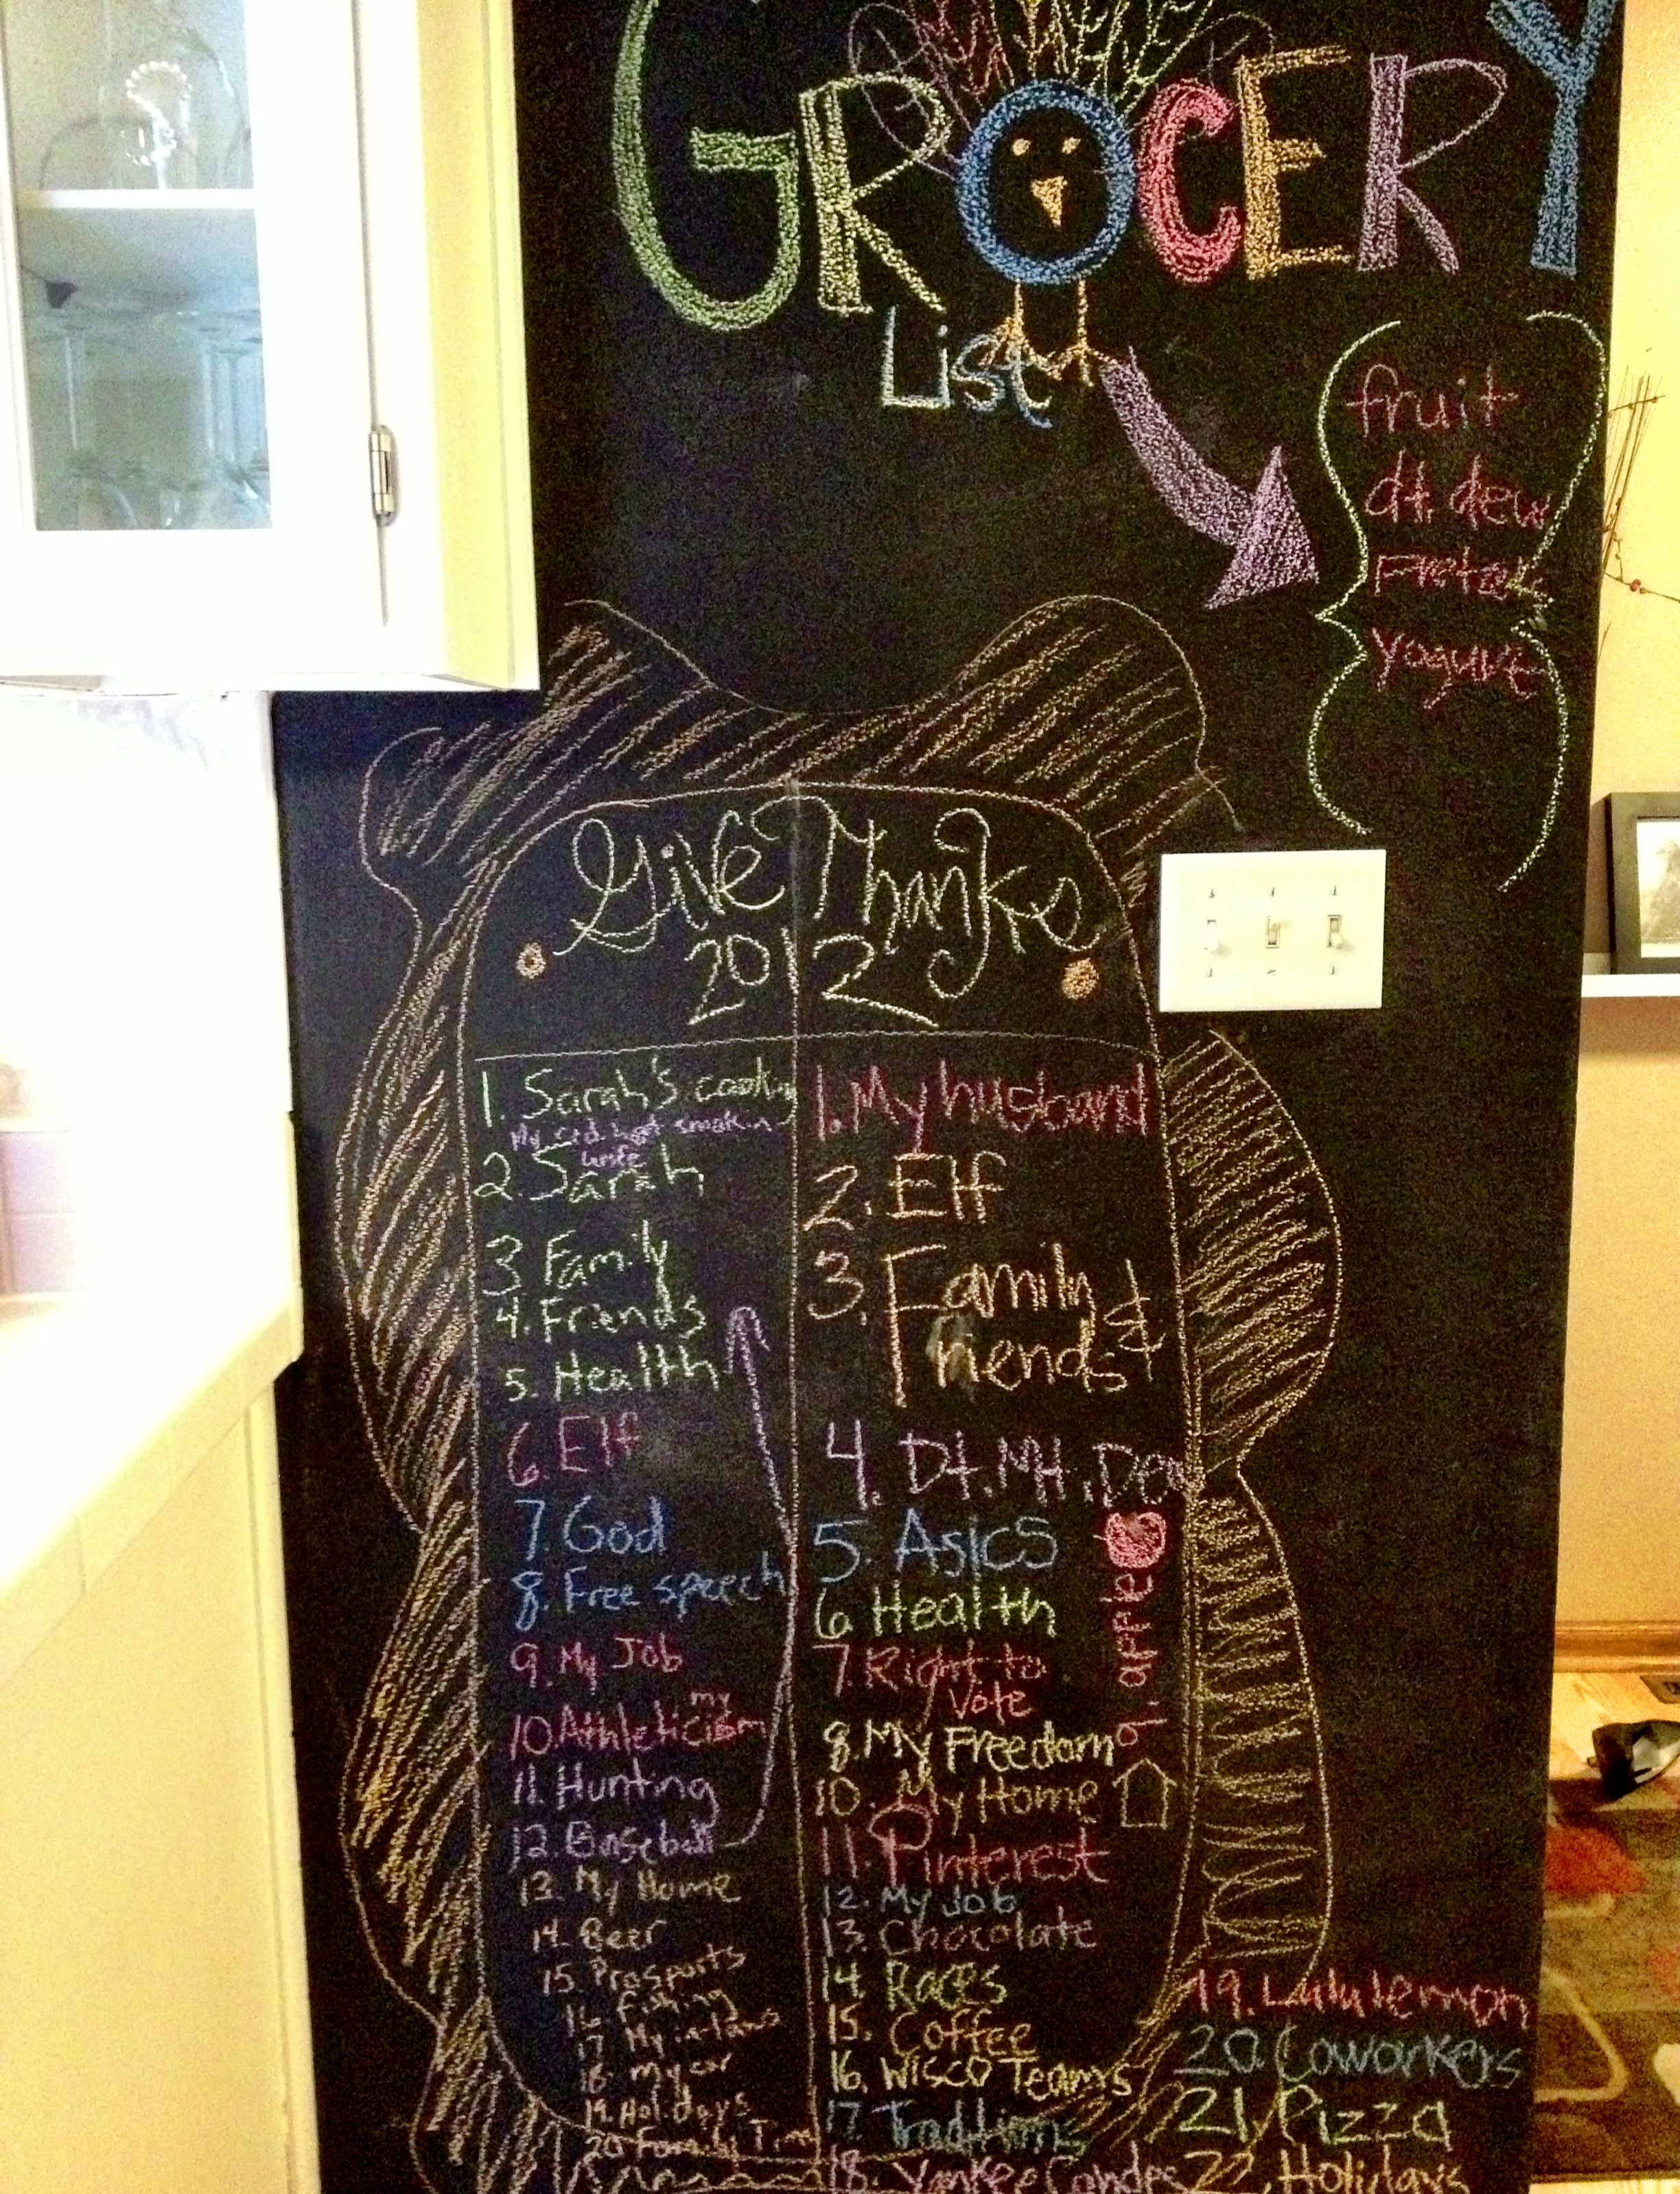 GROCERY
List
fruit
dt dew
Pretzels
yogurt
Give Thanks
2012
1. Sarah's cookin
My red hot smokin
wife
2. Sarah
3 Family
4. Friends
5. Health
6. Elf
7. God
8. Free speech
9. My Job
my
10. Athleticism
11. Hunting
12. Baseball
13. My Home
14. Beer
15. Prosports
16. Fishing
17. My inlaws
18. my car
19. Holidays
20 Family Time
1. My husband
2. Elf
3. Family &
Friends
4. Dt. Mt. Dew
5. Asics
6 Health
7. Right to
Vote
8. My Freedom
9. apple
10. My Home
11. Pinterest
12. My Job
13. Chocolate
14. Races
15. Coffee
16. Wisco Teams
17. Traditions
18. Yankee Candles
19. Lululemon
20. Coworkers
21. Pizza
22. Holidays